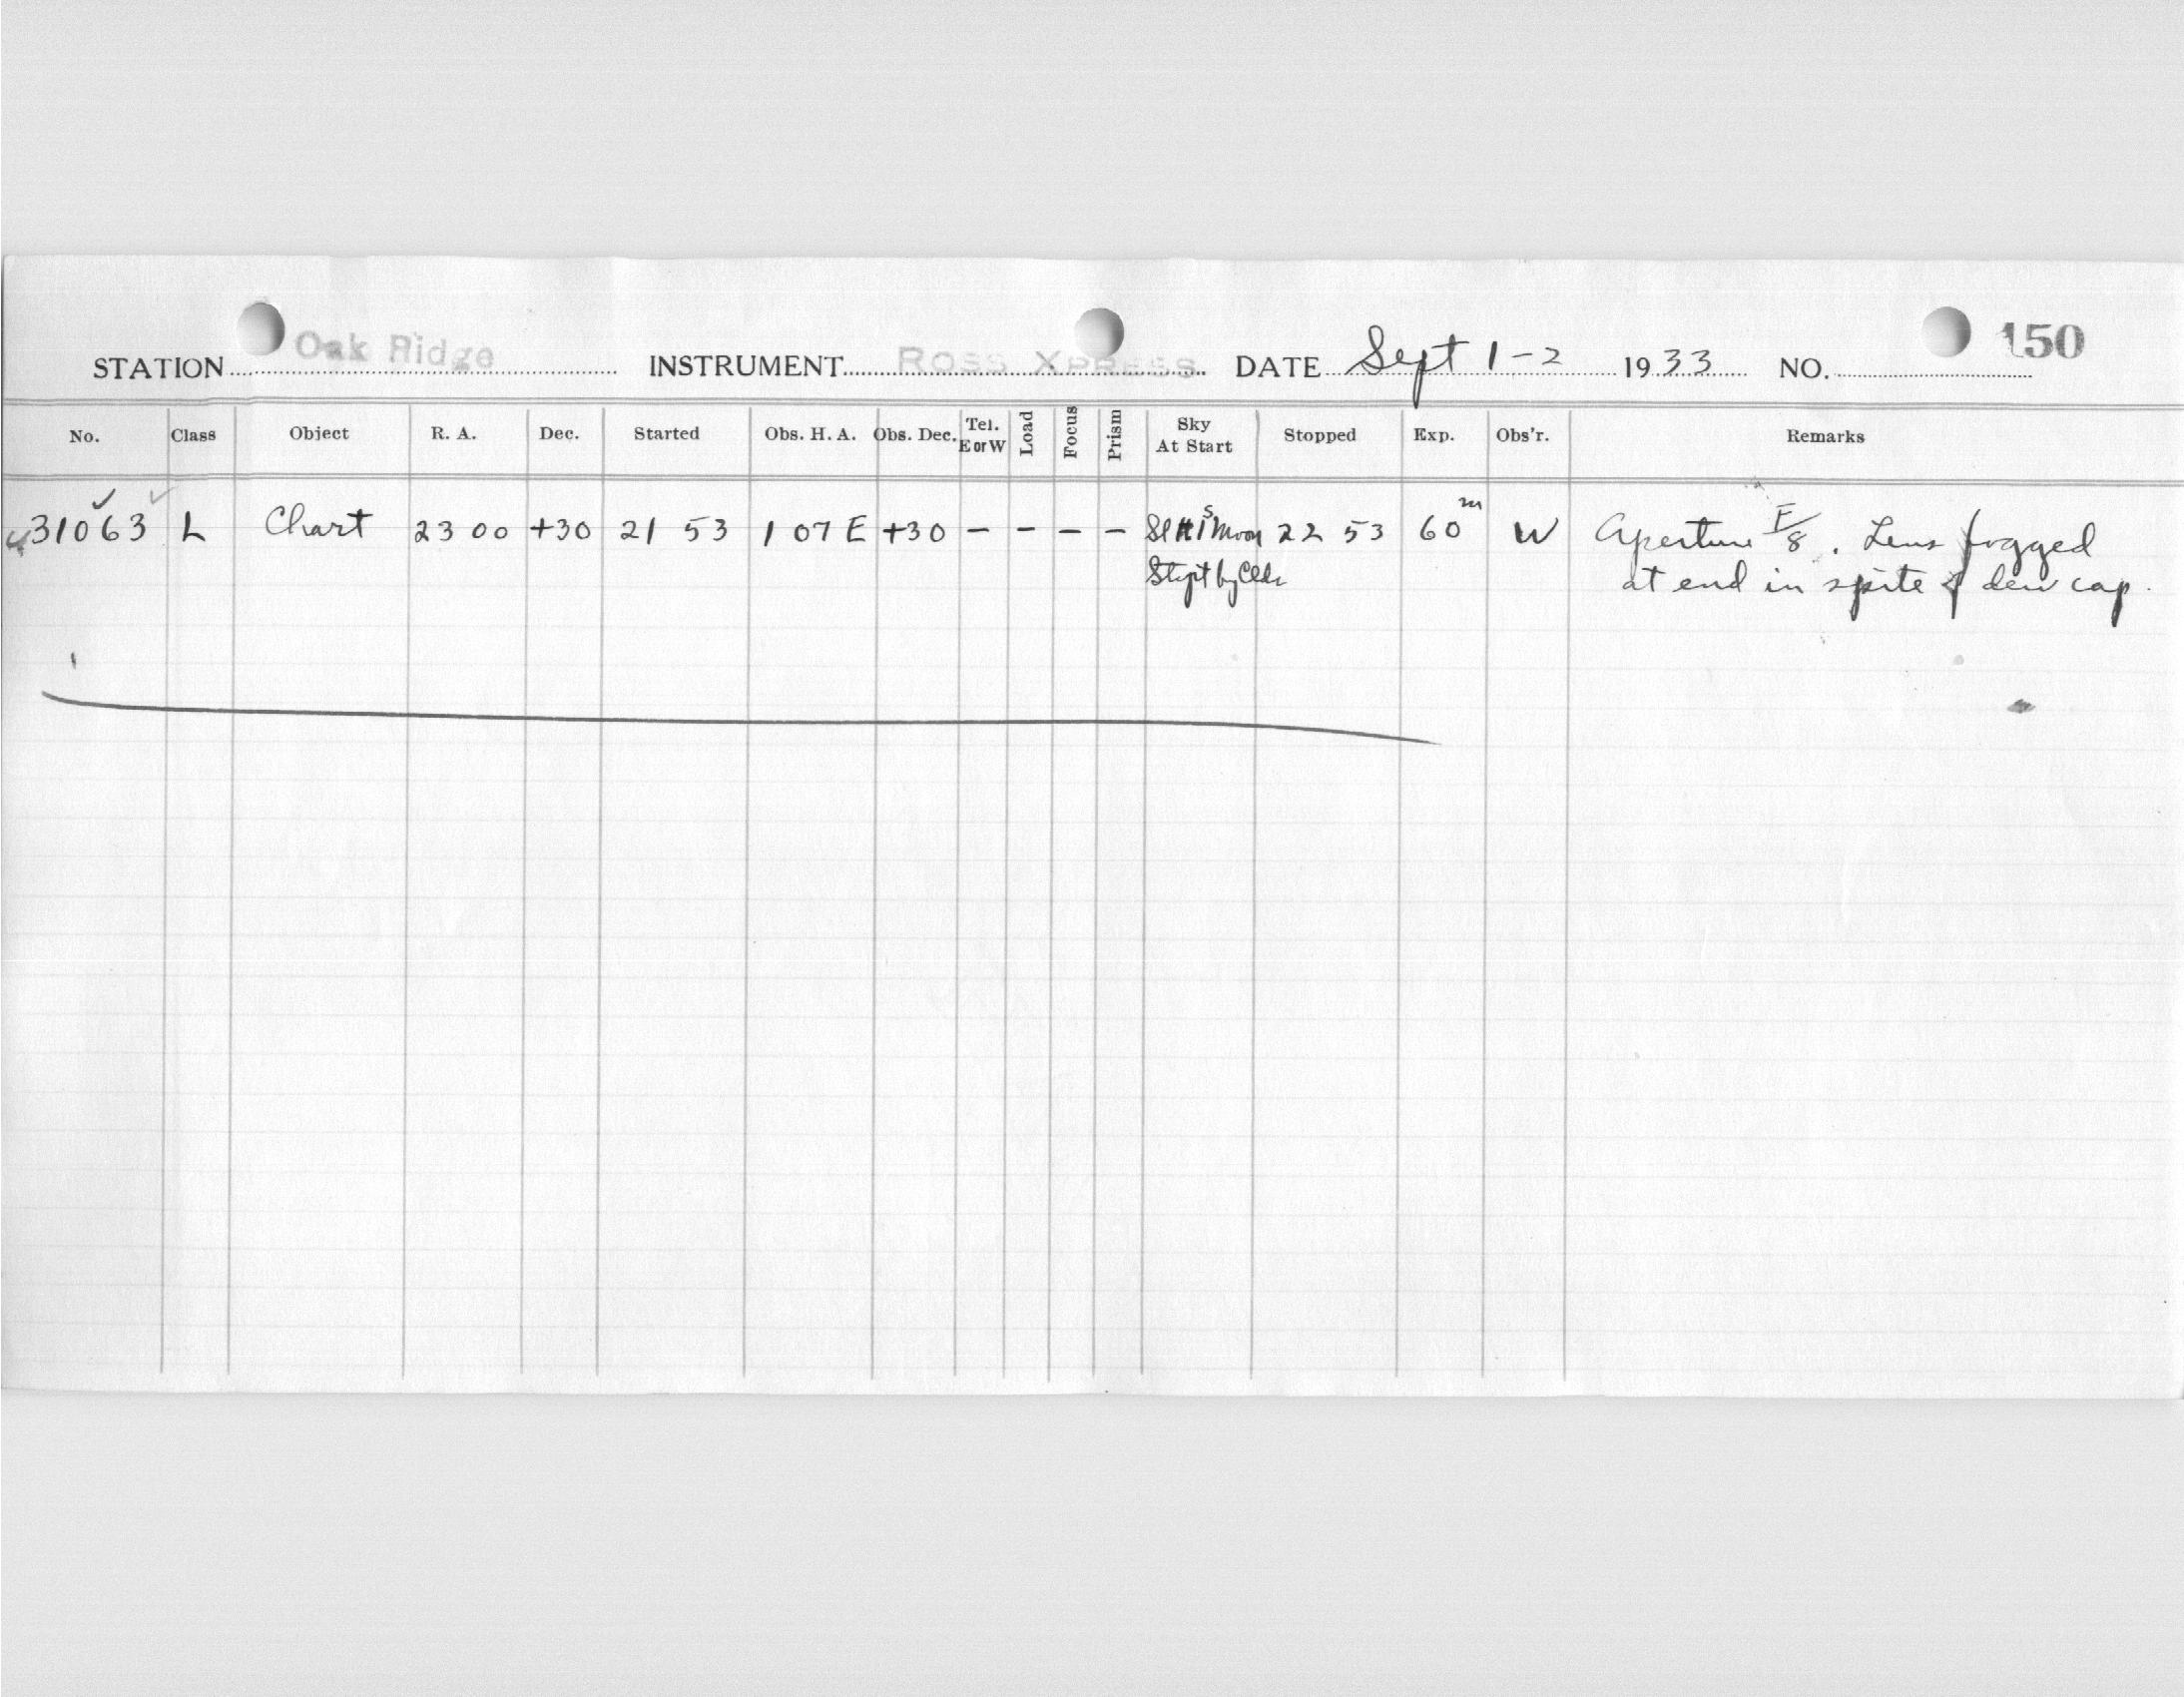 STATION Oak Ridge INSTRUMENT Ross Xpress DATE Sept 1-2 1933 NO. 150
No. Class Object R. A. Dec. Started Obs. H. A. Obs. Dec. Tel. E or W Load Focus Prism Sky At Start Stopped Exp. Obs'r. Remarks
31063 L Chart 23 00 +30 21 53 1 07 E +30 - - - - Sl Moon 22 53 60m W Aperture F/8. Lens fogged
Stopt by Clds at end in spite of dew cap.